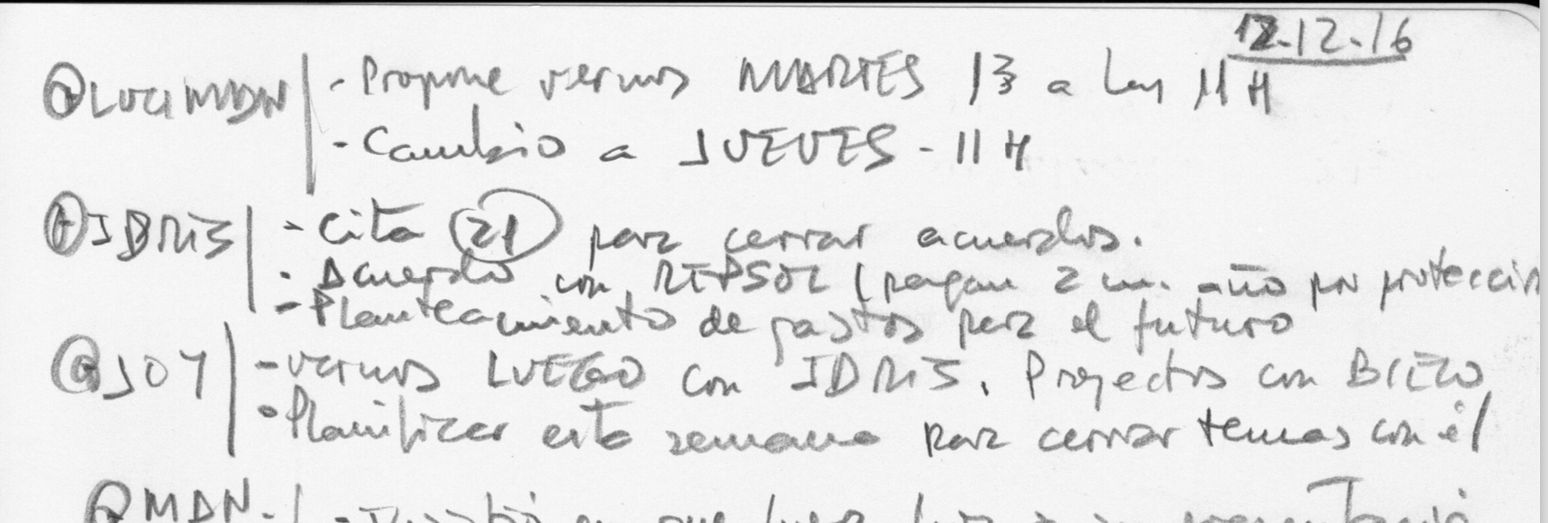 12.12.16
LUCI MDN - Propone vernos MARTES 13 a las 11 H
- Cambio a JUEVES - 11 H
IDRIS - Cita 21 para cerrar acuerdos.
- Acuerdo con REPSOL (pagan 2 m. año por protección
- Planteamiento de gastos para el futuro
JOY - vernos LUEGO con IDRIS. Proyectos con
- Planificar esta semana para cerrar temas con él
MDN. - que